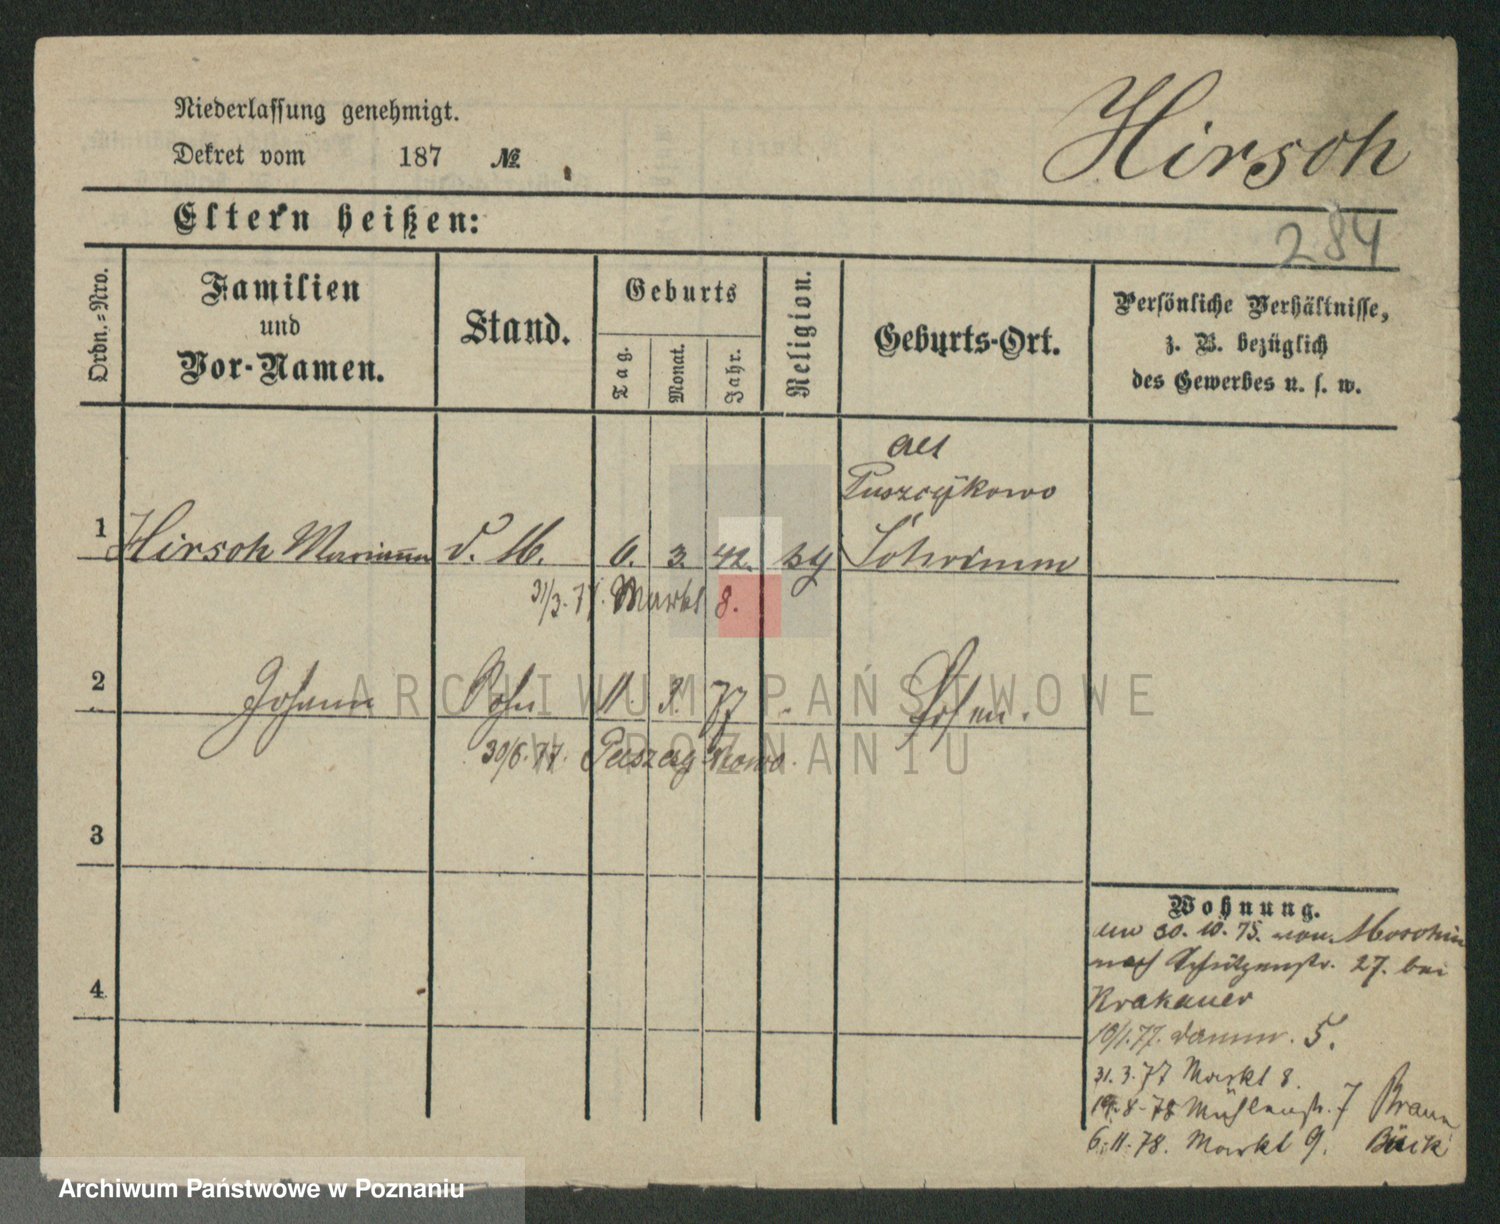 Niederlassung genehmigt.
Hirsch
Dekret vom 187 №
Eltern heißen:
284
Ordn.=Nro.
Familien
und
Vor-Namen.
Stand.
Geburts
Tag.
Monat.
Jahr.
Religion.
Geburts-Ort.
Persönliche Verhältnisse,
z. B. bezüglich
des Gewerbes u. s. w.
Alt
Puszczykowo
1 Hirsch Marianna d. M. 6. 3. 42. Schrimm
31/3. 77. Markt 8.
2 Johann Sohn 11. 3. 77 Posen.
30/6. 77. Puszczykowo.
3
4
Wohnung.
30. 10. 75. von Moschin
nach Schützenstr. 27. bei
Krakauer
10/1. 77. Damm. 5.
31. 3. 77 Markt 8.
8. 78 Mühlenstr. 7 Braun
6. 11. 78. Markt 9.
ARCHIWUM PAŃSTWOWE
W POZNANIU
Archiwum Państwowe w Poznaniu